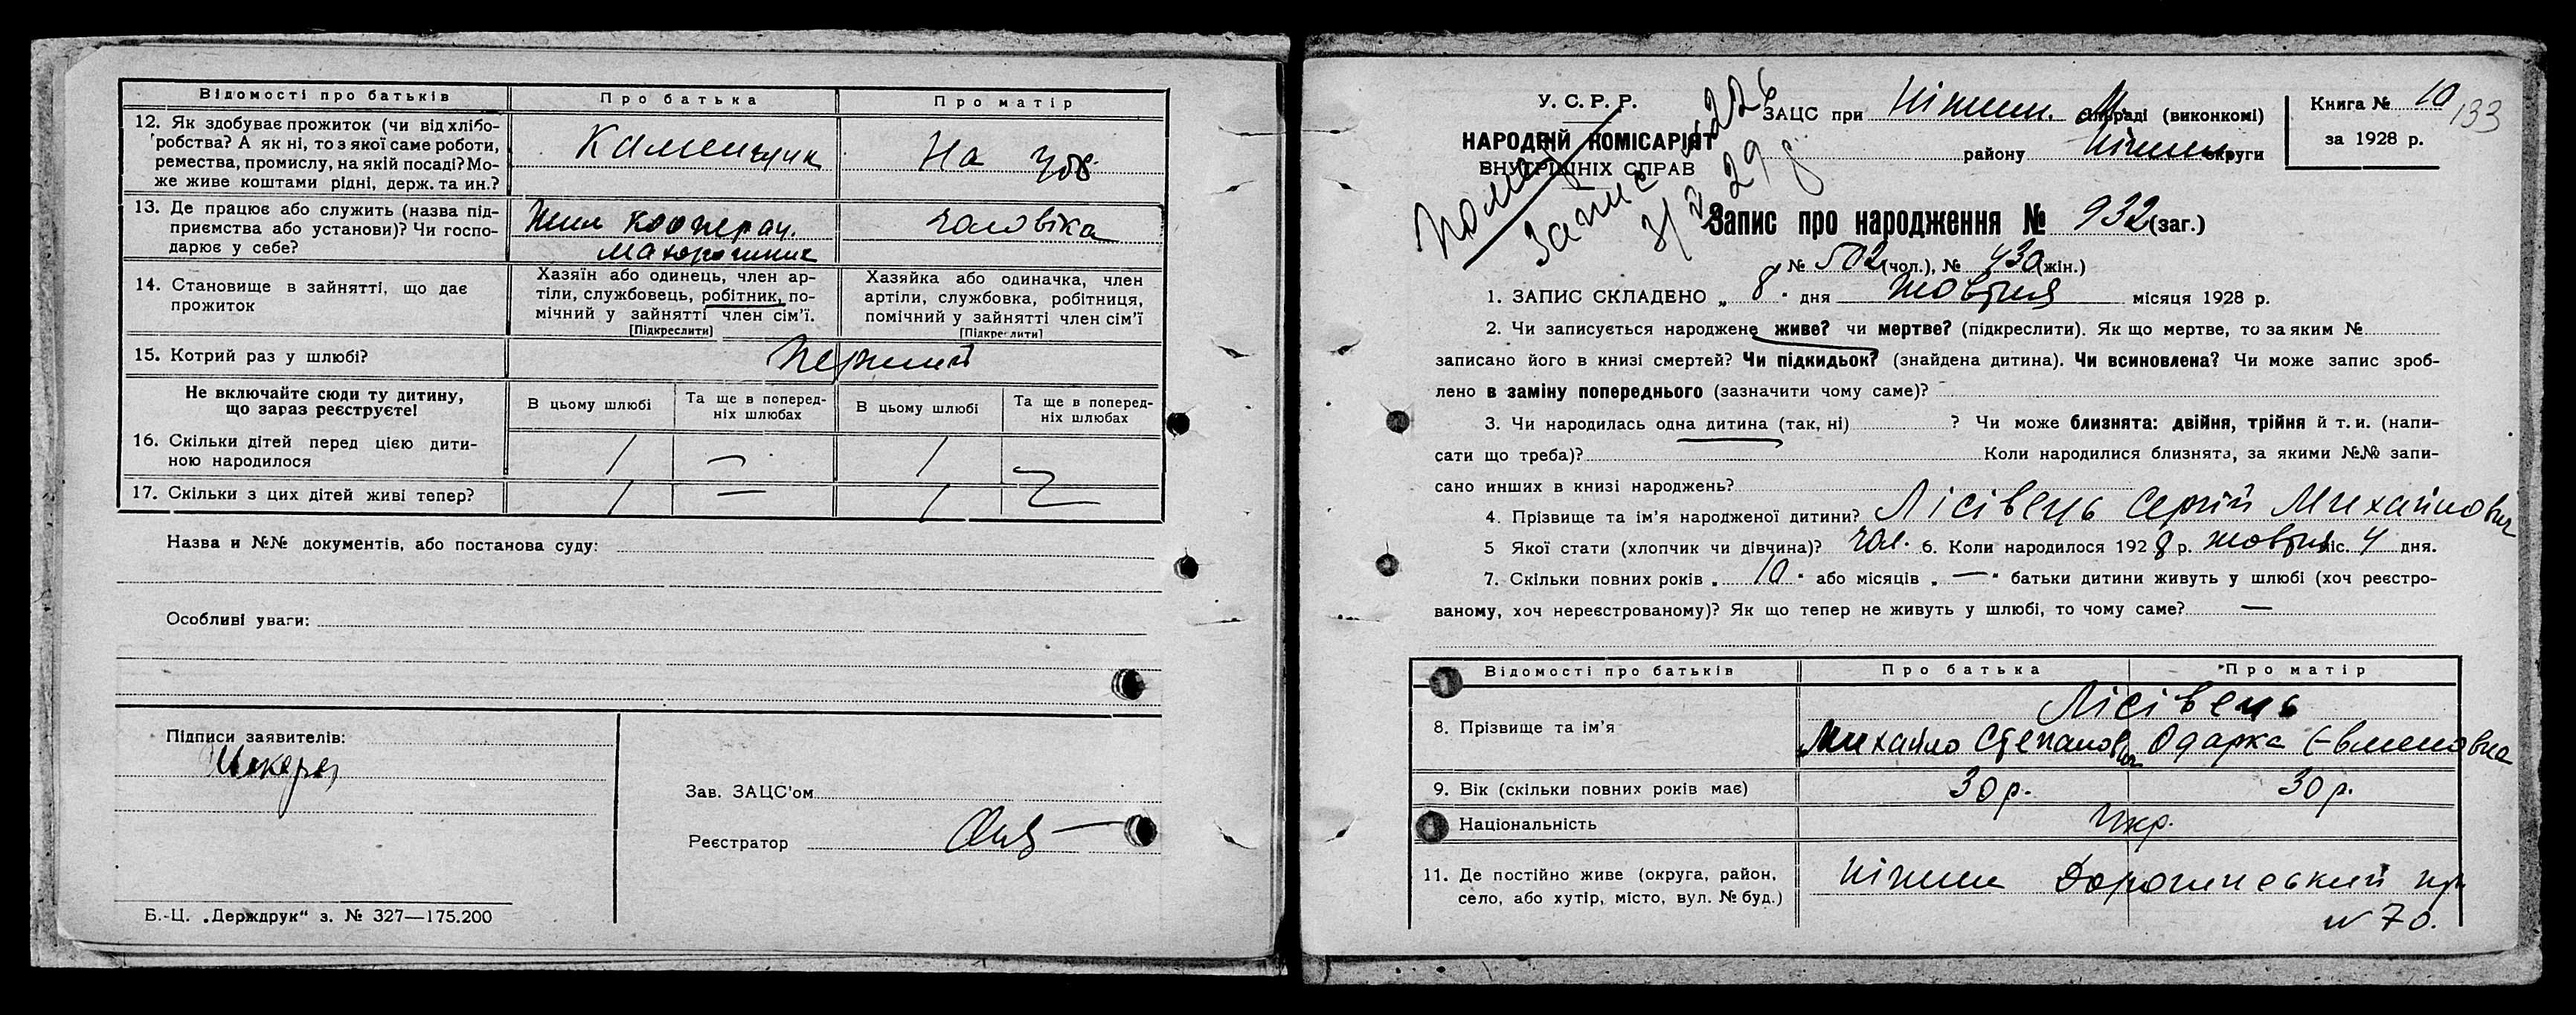 Відомості про батьків
Про батька
Про матір
12. Як здобуває прожиток (чи від хлібо-
робства? А як ні, то з якої саме роботи,
ремества, промислу, на якій посаді? Мо-
же живе коштами рідні, держ. та ин.?
Каменщик
На
13. Де працює або служить (назва під-
приємства або установи)? Чи госпо-
дарює у себе?
кооперац.
чоловіка
14. Становище в зайнятті, що дає
прожиток
Хазяїн або одинець, член ар-
тілі, службовець, робітник, по-
мічний у зайнятті член сім'ї.
[Підкреслити]
Хазяйка або одиначка, член
артілі, службовка, робітниця,
помічний у зайнятті член сім'ї
[Підкреслити]
15. Котрий раз у шлюбі?
Перший
Не включайте сюди ту дитину,
що зараз реєструєте!
В цьому шлюбі
Та ще в поперед-
ніх шлюбах
В цьому шлюбі
Та ще в поперед-
ніх шлюбах
16. Скільки дітей перед цією дити-
ною народилося
1 — 1
17. Скільки з цих дітей живі тепер?
1 — 1
Назва и №№ документів, або постанова суду:
Особливі уваги:
Підписи заявителів:
Зав. ЗАЦС'ом
Реєстратор
Б.-Ц. „Держдрук“ з. № 327—175.200
У. С. Р. Р.
НАРОДНІЙ КОМІСАРІЯТ
ВНУТРІШНІХ СПРАВ
Запис
ЗАЦС при Ніжин. М. раді (виконкомі)
району Ніжин. округи
Книга № 10
за 1928 р.
133
Запис про народження № 932 (заг.)
№ 502 (чол.), № 430 (жін.)
1. ЗАПИС СКЛАДЕНО „ 8 " дня Жовтня місяця 1928 р.
2. Чи записується народжене живе? чи мертве? (підкреслити). Як що мертве, то за яким №
записано його в книзі смертей? Чи підкидьок? (знайдена дитина). Чи всиновлена? Чи може запис зроб-
лено в заміну попереднього (зазначити чому саме)?
3. Чи народилась одна дитина (так, ні) ? Чи може близнята: двійня, трійня й т. и. (напи-
сати що треба)? Коли народилися близнята, за якими №№ запи-
сано инших в книзі народжень?
4. Прізвище та ім'я народженої дитини? Лісівець Сергій Михайлович
5 Якої стати (хлопчик чи дівчина)? чол. 6. Коли народилося 1928 р. жовтня міс. 4 дня.
7. Скільки повних років „ 10 " або місяців „ — " батьки дитини живуть у шлюбі (хоч реєстро-
ваному, хоч нереєстрованому)? Як що тепер не живуть у шлюбі, то чому саме? —
Відомості про батьків
Про батька
Про матір
8. Прізвище та ім'я
Лісівець
Михайло Степанович
Одарка Євменовна
9. Вік (скільки повних років має)
30 р.
30 р.
Національність
Укр.
11. Де постійно живе (округа, район,
село, або хутір, місто, вул. № буд.)
Ніжин
№ 70.